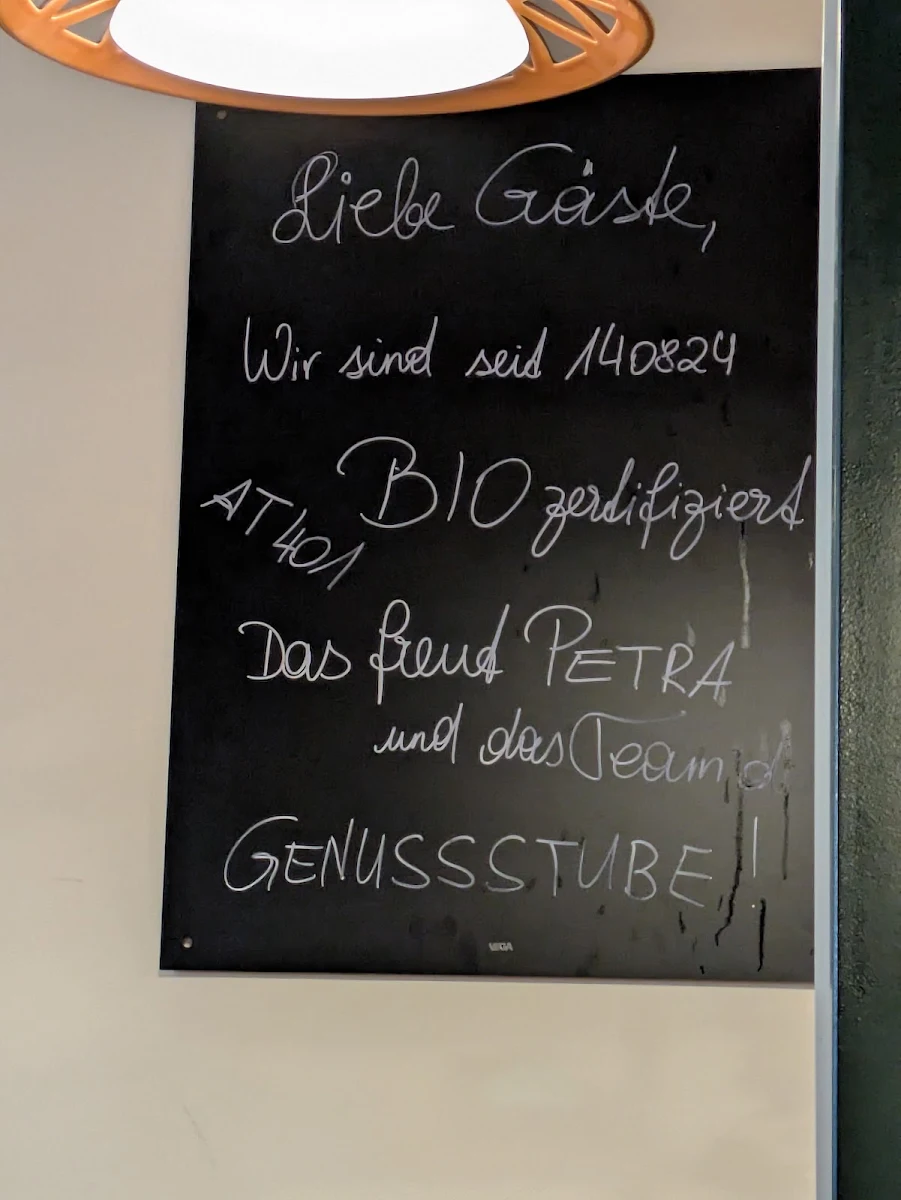 Liebe Gäste,
Wir sind seit 140824
BIO zertifiziert
AT 401
Das freut PETRA
und das Team d.
GENUSSSTUBE!
VEGA